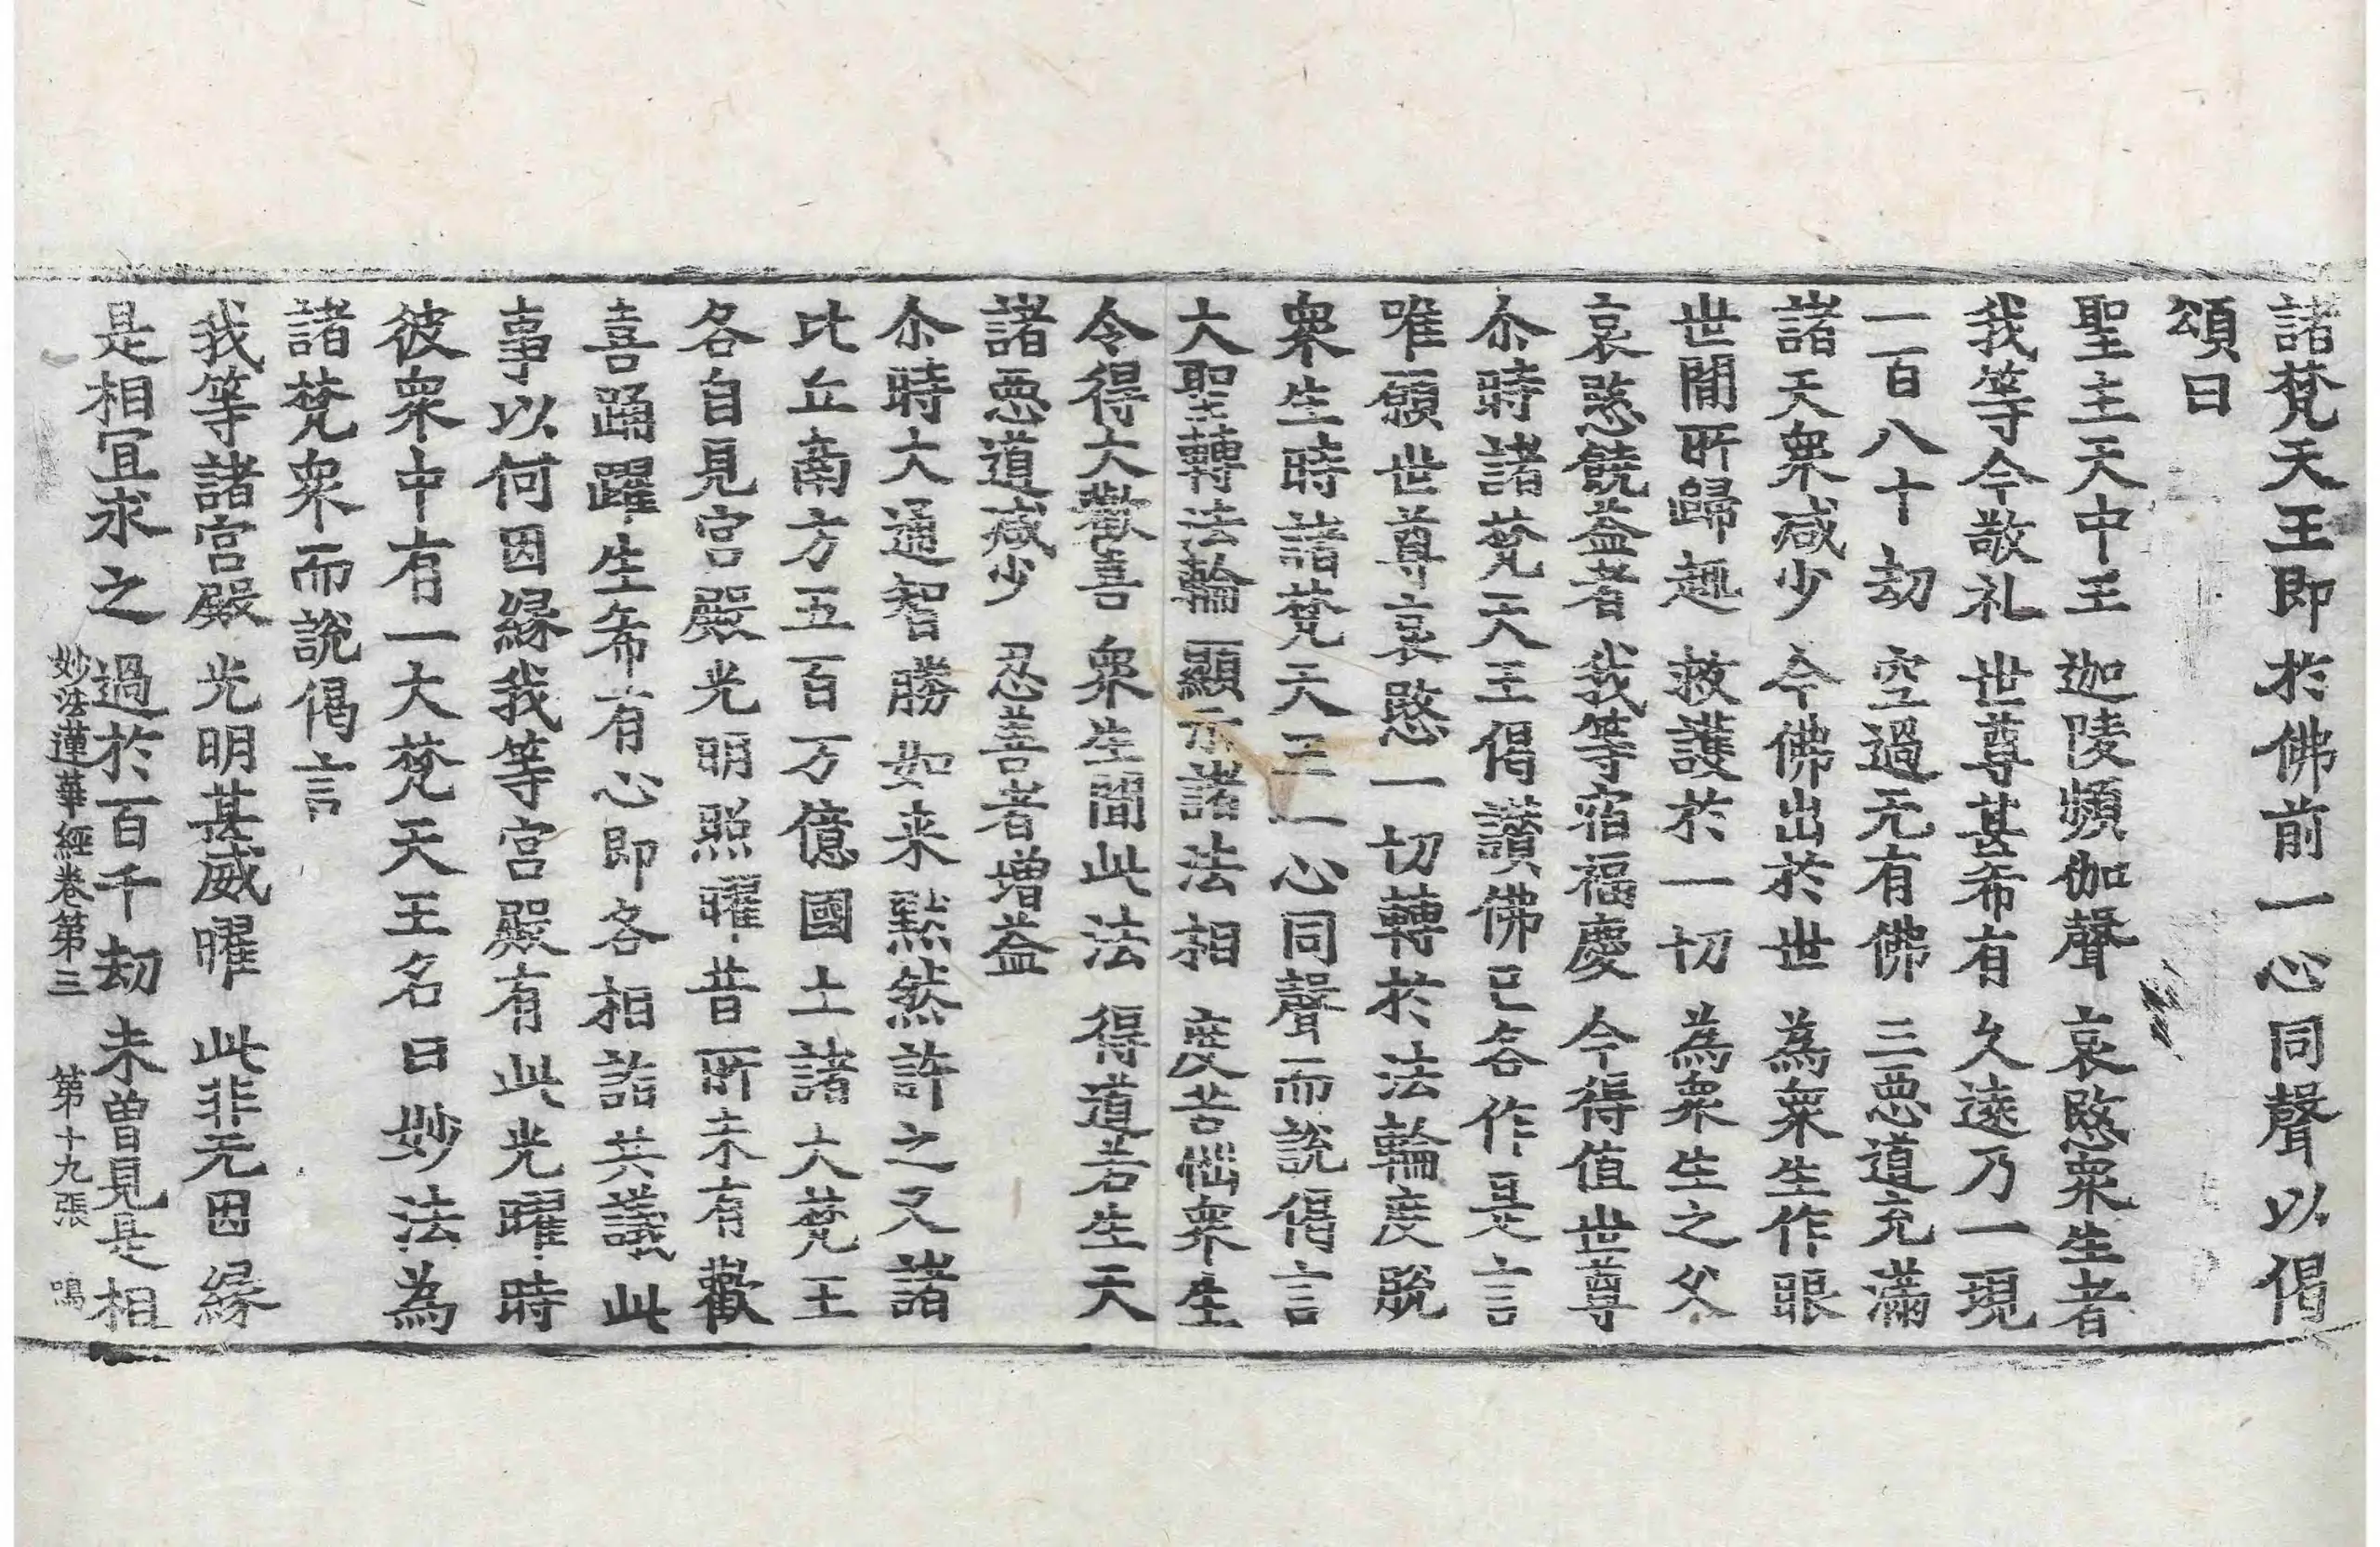 諸梵天王即於佛前一心同聲以偈
頌曰
聖主天中王 迦陵頻伽聲 哀愍衆生者
我等今敬礼 世尊甚希有 久遠乃一現
一百八十劫 空過无有佛 三惡道充滿
諸天衆減少 今佛出於世 為衆生作眼
世間所歸趣 救護於一切 為衆生之父
哀愍饒益者 我等宿福慶 今得值世尊
尒時諸梵天王偈讃佛已各作是言
唯願世尊哀愍一切轉於法輪度脫
衆生時諸梵天王一心同聲而說偈言
大聖轉法輪 顯示諸法相 度苦惱衆生
令得大歡喜 衆生聞此法 得道若生天
諸惡道減少 忍善者增益
尒時大通智勝如来黙然許之又諸
比丘南方五百万億國土諸大梵王
各自見宮殿光明照曜昔所未有歡
喜踊躍生希有心即各相詣共議此
事以何因緣我等宮殿有此光曜時
彼衆中有一大梵天王名曰妙法為
諸梵衆而說偈言
我等諸宮殿 光明甚威曜 此非无因緣
是相冝求之 過於百千劫 未曾見是相
妙法蓮華經卷第三 第十九張 鳴